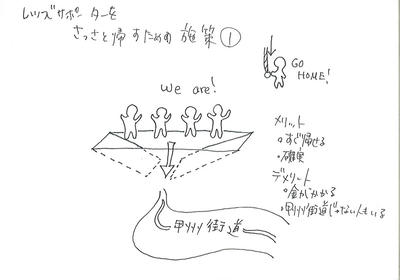 レッズサポーターを
さっさと帰すための施策①
GO
HOME!
we are!
メリット
・すぐ帰せる
・確実
デメリット
・金がかかる
・甲州街道じゃない人もいる
甲州街道